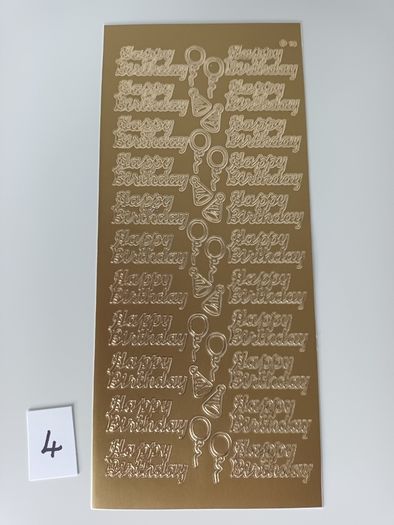 Happy
Birthday
Happy
Birthday
Happy
Birthday
Happy
Birthday
Happy
Birthday
Happy
Birthday
Happy
Birthday
Happy
Birthday
Happy
Birthday
Happy
Birthday
Happy
Birthday
Happy
Birthday
Happy
Birthday
Happy
Birthday
Happy
Birthday
Happy
Birthday
Happy
Birthday
Happy
Birthday
Happy
Birthday
Happy
Birthday
Happy
Birthday
Happy
Birthday
4